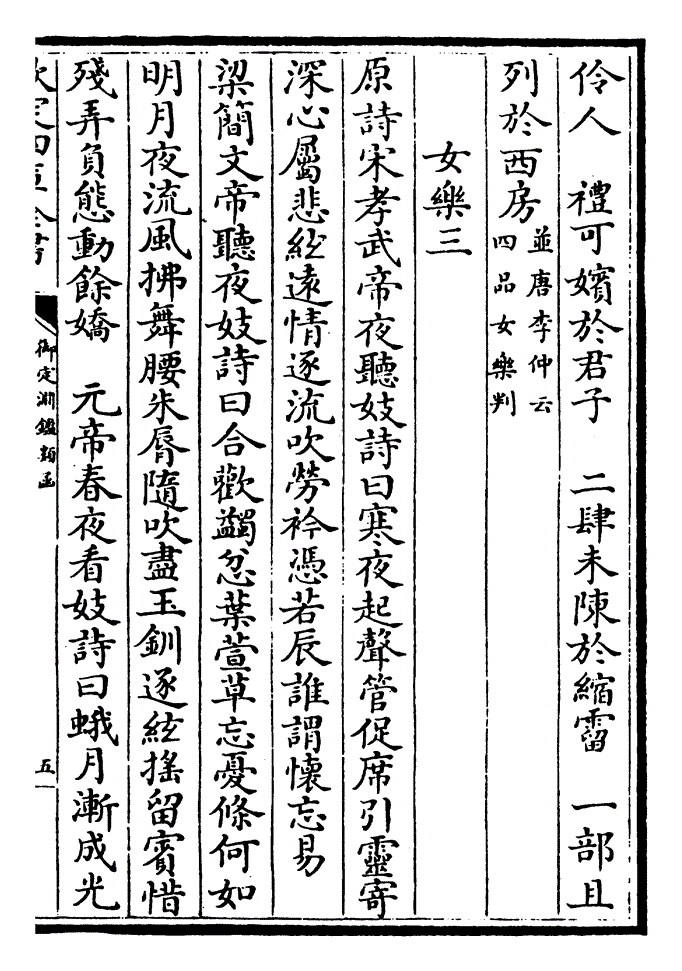 伶人　禮可嬪於君子　二肆未陳於縮霤　一部且
列於西房並唐李仲云
四品女樂判
女樂三
原詩宋孝武帝夜聽妓詩曰寒夜起聲管促席引靈寄
深心屬悲絃遠情逐流吹勞衿憑若辰誰謂懷忘易
梁簡文帝聽夜妓詩曰合歡蠲忿葉萱草忘憂條何如
明月夜流風拂舞腰朱脣隨吹盡玉釧逐絃搖留賓惜
殘弄負態動餘嬌　元帝春夜看妓詩曰蛾月漸成光
欽定四庫全書
御定淵鑑類函
五